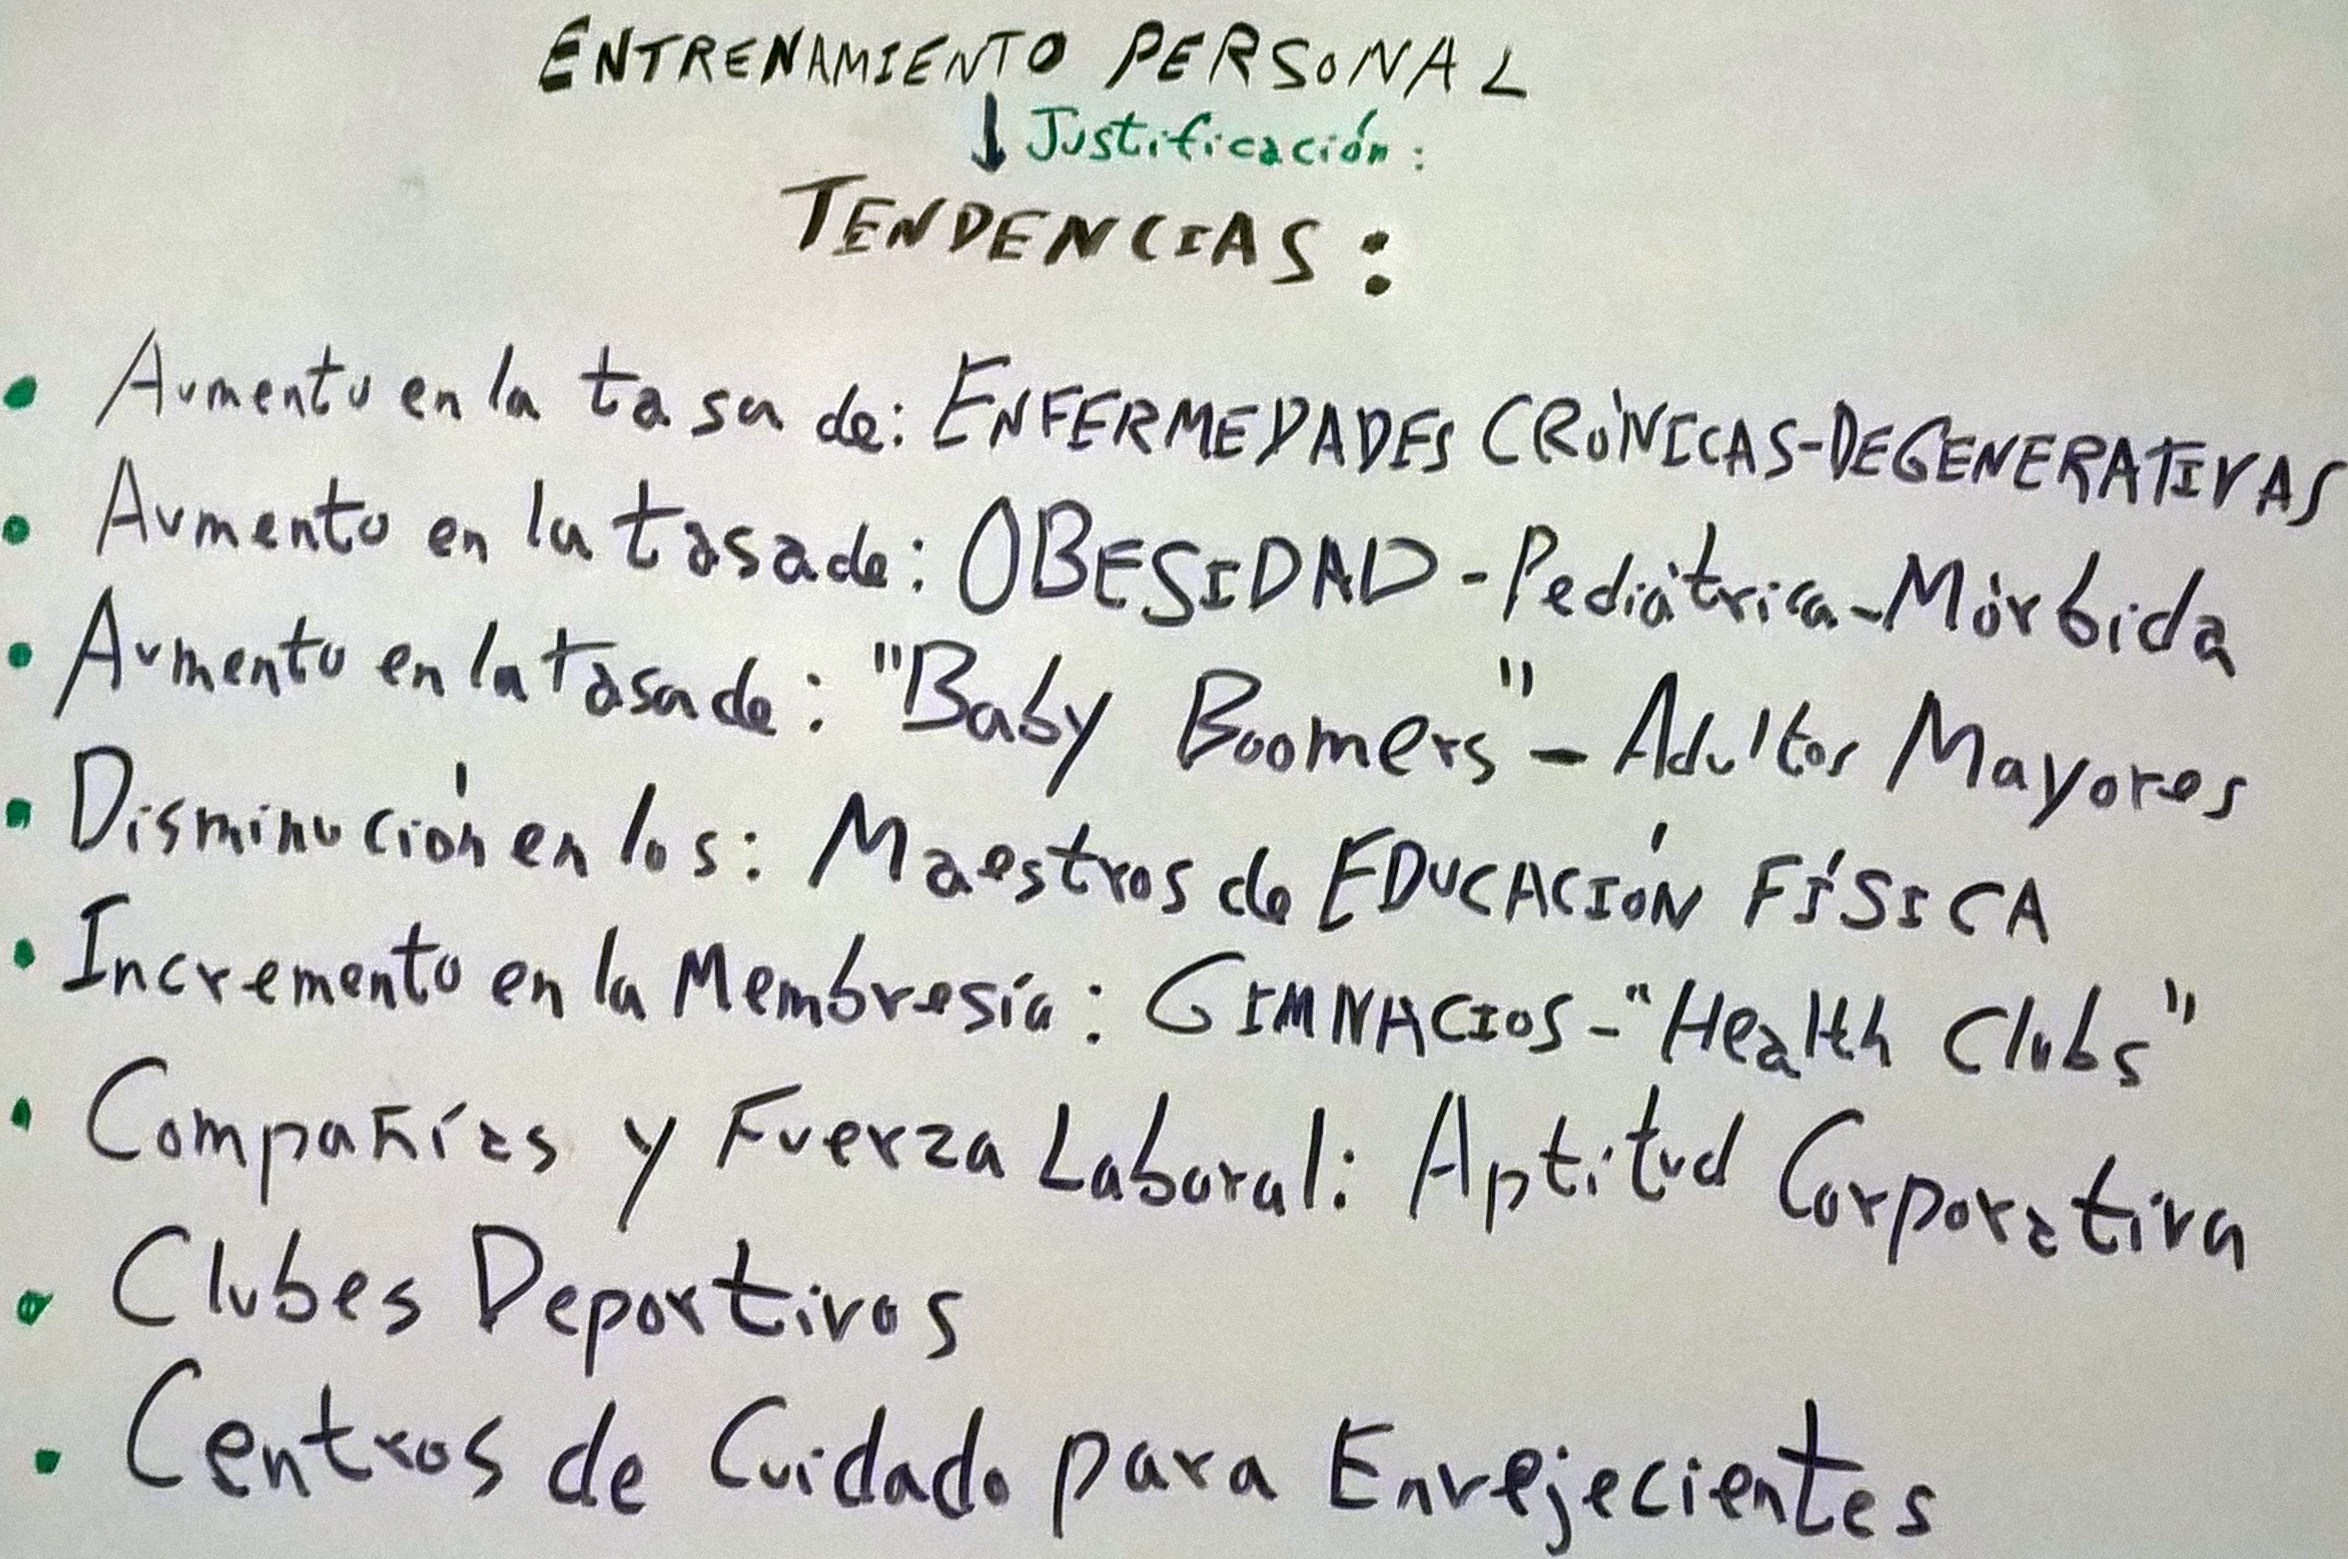 ENTRENAMIENTO PERSONAL
↓ Justificación:
TENDENCIAS:
• Aumento en la tasa de: ENFERMEDADES CRÓNICAS-DEGENERATIVAS
• Aumento en la tasa de: OBESIDAD - Pediátrica - Mórbida
• Aumento en la tasa de: "Baby Boomers" - Adultos Mayores
• Disminución en los: Maestros de EDUCACIÓN FÍSICA
• Incremento en la Membresía: GIMNACIOS - "Health Clubs"
• Compañías y Fuerza Laboral: Aptitud Corporativa
• Clubes Deportivos
• Centros de Cuidado para Envejecientes